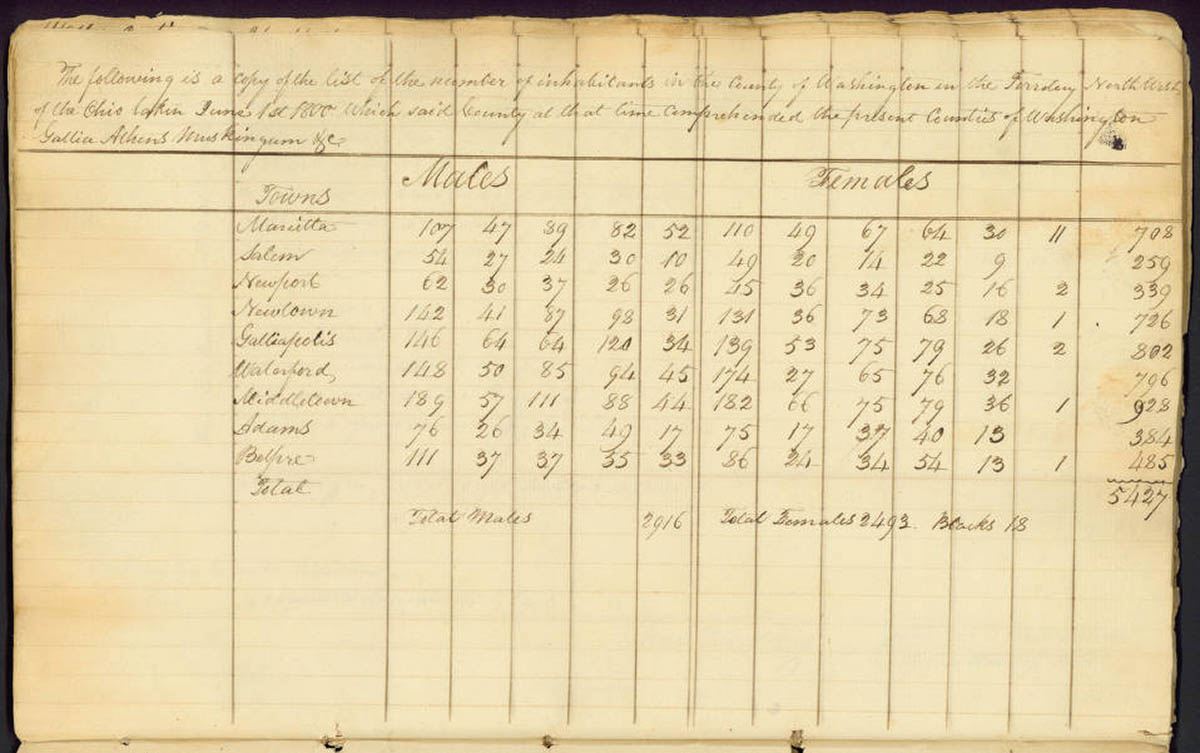 The following is a copy of the list of the number of inhabitants in the County of Washington in the Territory North West
of the Ohio taken June 1st 1800 which said County at that time comprehended the present Counties of Washington
Gallia Athens Muskingum &c
Males Females
Towns
Marietta 107 47 89 82 52 110 49 67 64 30 11 708
Salem 54 27 24 30 10 49 20 14 22 9 259
Newport 62 30 37 26 26 45 36 34 25 16 2 339
Newtown 142 41 87 98 31 131 36 73 68 18 1 726
Galliapolis 146 64 64 120 34 139 53 75 79 26 2 802
Waterford, 148 50 85 94 45 174 27 65 76 32 796
Middletown 189 57 111 88 44 182 66 75 79 36 1 928
Adams 76 26 34 49 17 75 17 37 40 13 384
Belpre 111 37 37 55 33 86 24 34 54 13 1 485
Total 5427
Total Males 2916 Total Females 2493. Blacks 18